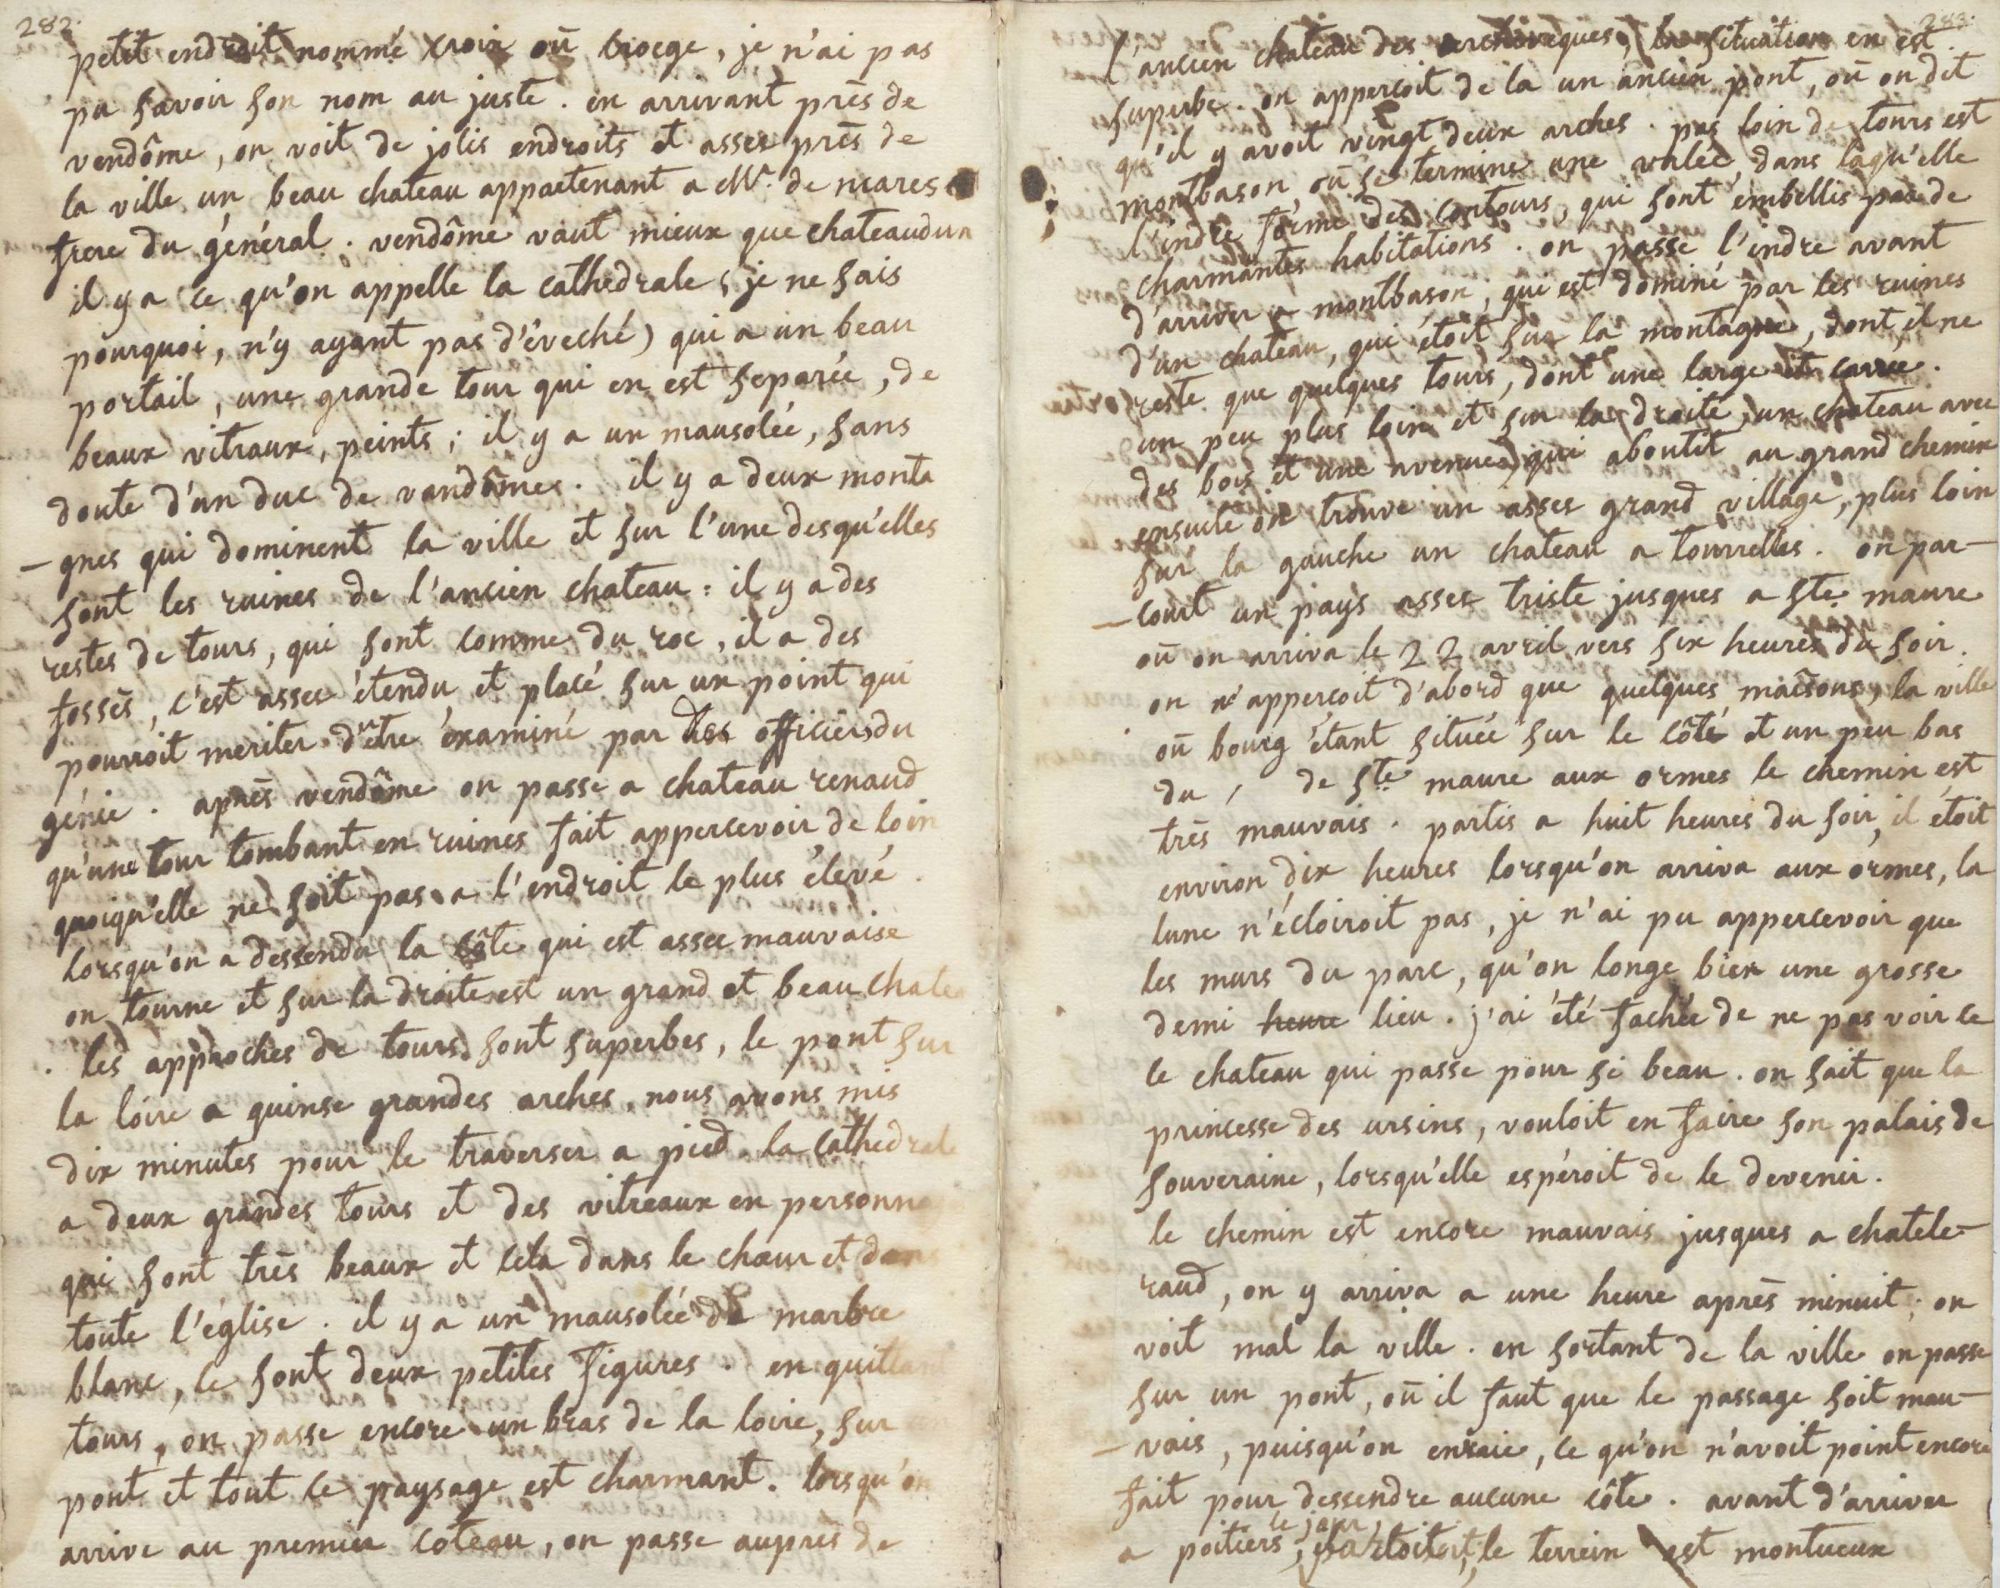 282.
petit endroit nommé croix où brocge, je n'ai pas
pu savoir son nom au juste. en arrivant près de
vendôme, on voit de jolis endroits et asses près de
la ville un beau chateau appartenant a Mr. de mares
frere du général. vendôme vaut mieux que chateaudun
il y a ce qu'on appelle la cathedrale (je ne sais
pourquoi, n'y ayant pas d'éveché) qui a un beau
portail, une grande tour qui en est separée, de
beaux vitraux, peints; il y a un mausolée, sans
doute d'un duc de vandôme. il y a deux monta
-gnes qui dominent la ville et sur l'une desqu'elles
sont les ruines de l'ancien chateau: il y a des
restes de tours, qui sont comme du roc, il a des
fossés, c'est asses étendu et placé sur un point qui
pourroit meriter d'être éxaminé par des officiers du
génie. après vendôme on passe a chateau renaud
qu'une tour tombant en ruines fait appercevoir de loin
quoiqu'elle ne soit pas a l'endroit le plus élevé.
lorsqu'on a dessendu la côte qui est asses mauvaise
on tourne et sur la droite est un grand et beau chate
. les approches de tours sont superbes, le pont sur
la loire a quinse grandes arches, nous avons mis
dix minutes pour le traverser a pied. la cathedrale
a deux grandes tours et des vitreaux en personna
qui sont très beaux et cela dans le chœur et dans
toute l'église. il y a un mausolée de marbre
blanc, ce sont deux petites figures. en quittant
tours, on passe encore un bras de la loire, sur un
pont et tout ce paysage est charmant. lorsqu'on
arrive au premier coteau, on passe auprès de
283.
l'ancien chateau des archevêques, la situation en est
superbe. on apperçoit de la un ancien pont, où on dit
qu'il y avoit vingt deux arches. pas loin de tours est
montbason, où se termine une valée, dans laqu'elle
l'indre forme des contours, qui sont embellis par de
charmantes habitations. on passe l'indre avant
d'arriver a montbason, qui est dominé par les ruines
d'un chateau, qui étoit sur la montagne, dont il ne
reste que quelques tours, dont une large et carrée.
un peu plus loin et sur la droite, un chateau avec
des bois et une avenue, qui aboutit au grand chemin
ensuite on trouve un asses grand village, plus loin
sur la gauche un chateau a tourrelles. on par-
-court un pays asses triste jusques a Ste. maure
où on arriva le 22 avril vers six heures du soir.
on n'apperçoit d'abord que quelques maisons, la ville
où bourg étant située sur le côté et un peu bas
du / de Ste. maure aux ormes le chemin est
très mauvais. partis a huit heures du soir, il étoit
environ dix heures lorsqu'on arriva aux ormes, la
lune n'écloiroit pas, je n'ai pu appercevoir que
les murs du parc, qu'on longe bien une grosse
demi heure lieu. j'ai été fachée de ne pas voir ce
le chateau qui passe pour si beau. on sait que la
princesse des ursins, vouloit en faire son palais de
souveraine, lorsqu'elle espéroit de le devenir.
le chemin est encore mauvais jusques a chatele-
raud, on y arriva a une heure après minuit; on
voit mal la ville. en sortant de la ville on passe
sur un pont, où il faut que le passage soit mau-
-vais, puisqu'on enraie, ce qu'on n'avoit point encore
fait pour dessendre aucune côte. avant d'arriver
le jour,
a poitiers, le terrein est montueux